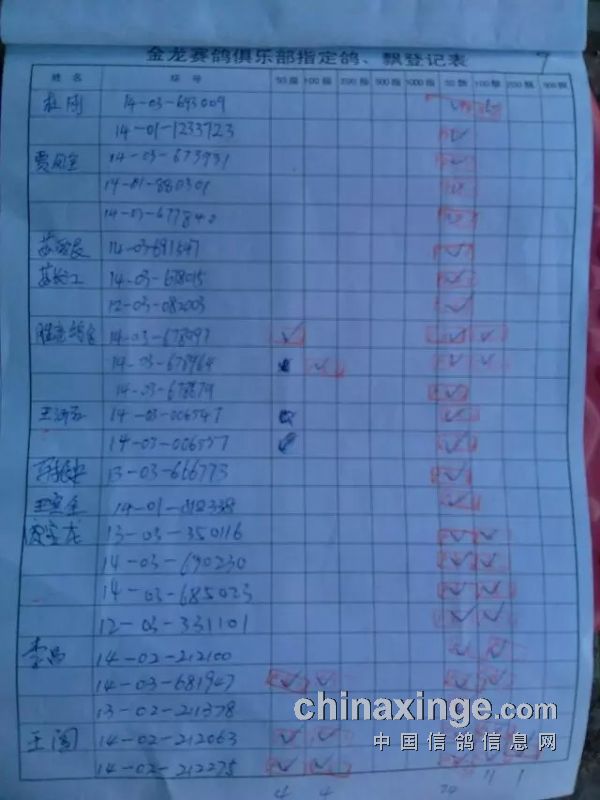 金龙赛鸽俱乐部指定鸽、飘登记表 7
姓名 环号 50指 100指 200指 500指 1000指 50飘 100飘 200飘 300飘
杜刚 14-03-693009 ✓
14-01-1233723 ✓
14-03-673931 ✓
14-01-880301
14-03-677840
14-03-691547 ✓
14-03-678015 ✓
12-03-082003 ✓
14-03-678097 ✓ ✓ ✓
14-03-678964 ✓ ✓ ✓
14-03-678679 ✓
14-03-006547 ✓
14-03-006557 ✓
13-03-666773 ✓
王宝全 14-01-812338 ✓
13-03-350116 ✓ ✓
14-03-690230 ✓ ✓
14-03-685023 ✓ ✓
12-03-331101 ✓ ✓
李昌 14-02-212100 ✓ ✓
14-03-681947 ✓ ✓ ✓ ✓
13-02-211378
王阔 14-02-212063 ✓ ✓
14-02-212275 ✓ ✓ ✓
4 4 11 1
chinaxinge.com
中国信鸽信息网